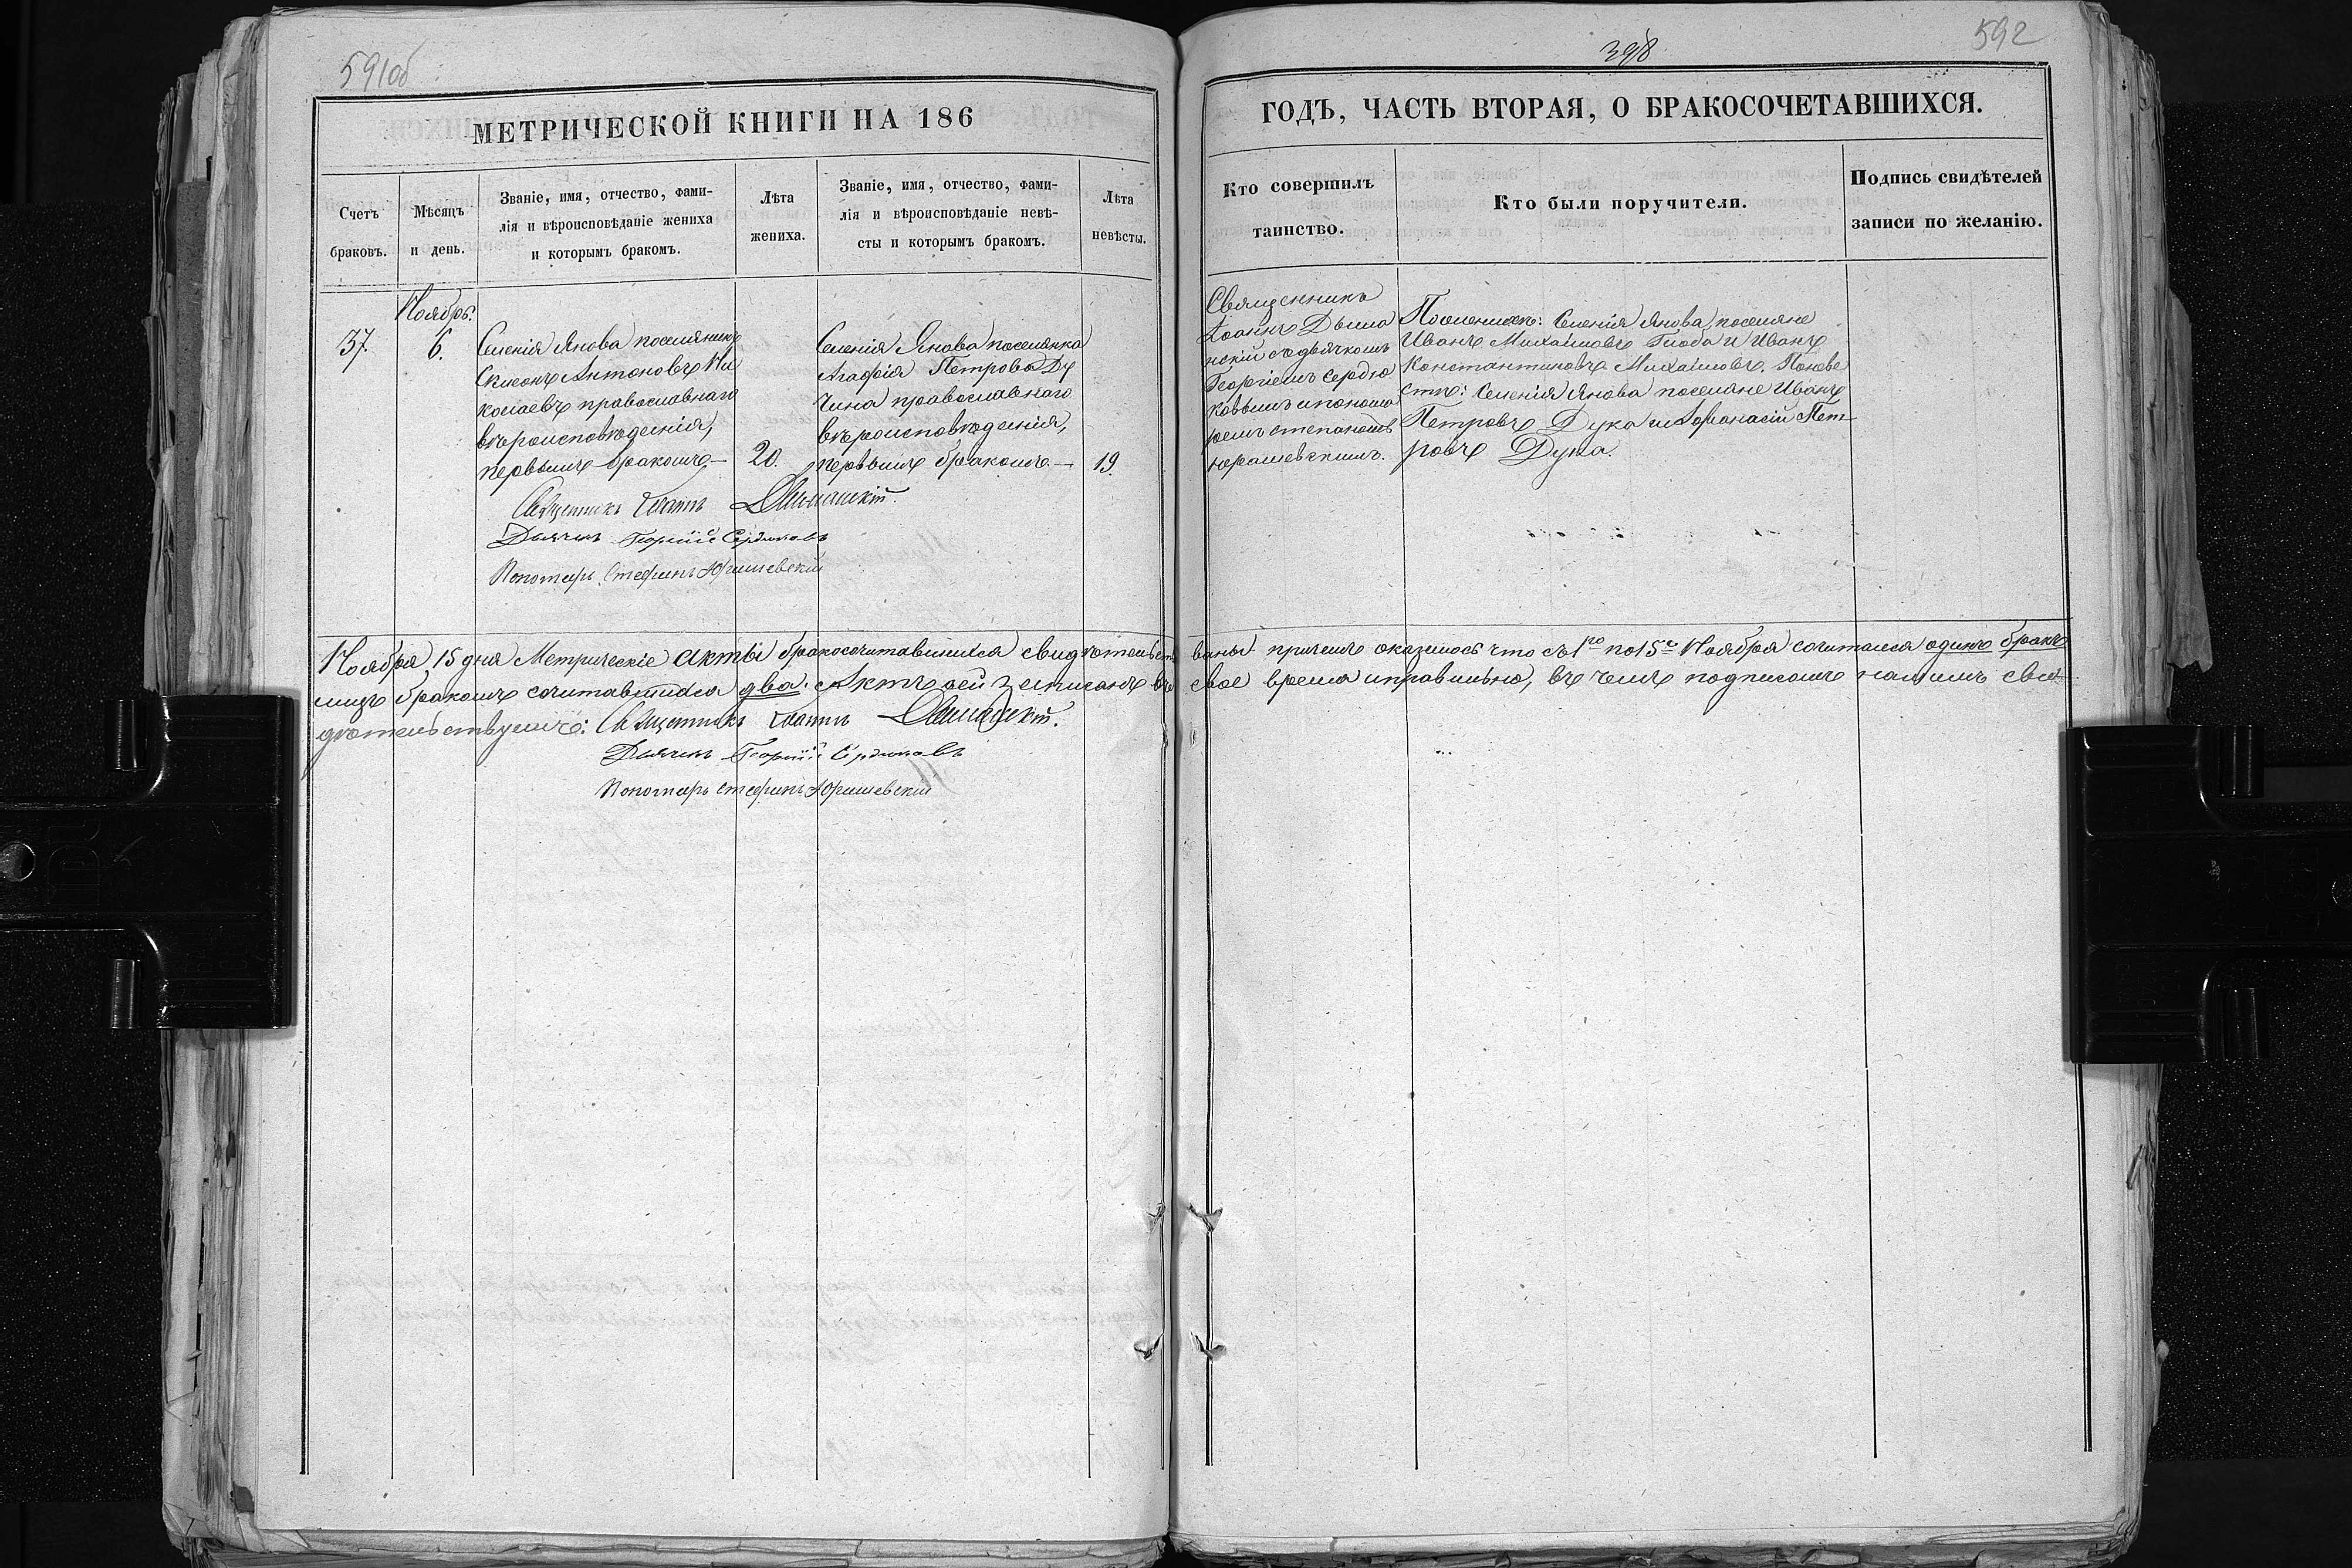 591об
398
592
МЕТРИЧЕСКОЙ КНИГИ НА 186
ГОДЪ, ЧАСТЬ ВТОРАЯ, О БРАКОСОЧЕТАВШИХСЯ.
Счетъ
браковъ.
Мѣсяцъ
и день.
Званіе, имя, отчество, фами-
лія и вѣроисповѣданіе жениха
и которымъ бракомъ.
Лѣта
жениха.
Званіе, имя, отчество, фами-
лія и вѣроисповѣданіе невѣ-
сты и которымъ бракомъ.
Лѣта
невѣсты.
Кто совершилъ
таинство.
Кто были поручители.
Подпись свидѣтелей
записи по желанію.
37.
Ноябрь.
6.
Селенія Янова поселянинъ
Симеонъ Антоновъ Ни
колаевъ православнаго
вѣроисповѣденія,
первымъ бракомъ.—
20.
Селенія Янова поселянка
Агафія Петрова Ду
чина православнаго
вѣроисповѣденія,
первымъ бракомъ.—
19.
Священникъ
Іоаннъ Дыма
нскій съ дьячкомъ
Георгіемъ Сердю
ковымъ и понома
ремъ Стефаномъ
Юрашевскимъ.
По женихѣ: Селенія Янова поселяне
Иванъ Михаиловъ и Иванъ
Константиновъ Михаиловъ. По неве
стѣ: Селенія Янова поселяне Иванъ
Петровъ Дука и Афанасій Пет-
ровъ Дука.
Священникъ Іоаннъ Дыманскій.
Дьячекъ Георгій Сердюковъ
Пономарь Стефанъ Юрашевскій
Ноября 15 дня Метрическіе акты бракосочитавшихся свидѣтельст ваны. причемъ оказалось что съ 1го по 15е Ноября сочитался одинъ бракъ
лицъ бракомъ сочитавшихся два. Актъ сей записанъ въ свое время и правильно, въ чемъ подписомъ нашимъ сви-
дѣтельствуемъ: Священникъ Іоаннъ Дыманскій.
Дьячекъ Георгій Сердюковъ
Пономарь Стефанъ Юрашевскій